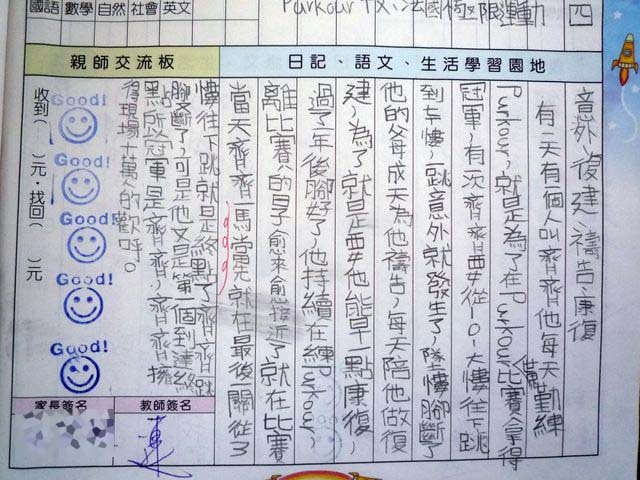 國語 數學 自然 社會 英文
Purkour 法國極限運動
四
日記、語文、生活學習園地
親師交流板
意外、復建、禱告、康復
有一天有個人叫齊齊他每天勤練
Purkour,就是為了在Purkour比賽拿得
冠軍,有次齊齊要從101大樓往下跳
到車樓,一跳意外就發生了,墜樓腳斷了
他的父母成天為他禱告,每天陪他做復
建,為了就是要他能早一點康復,
過了一年後腳好了,他持續在練Purkour,
離比賽的日子愈來愈接近了就在比賽
當天齊齊一馬當先就在最後一關從了
樓往下跳就是終點了齊齊跳
腳斷了,可是他又是第一個到達終
點所以冠軍是齊齊,齊齊擁
得現場十萬人的歡呼。
收到( )元.找回( )元
Good!
Good!
Good!
Good!
Good!
教師簽名
家長簽名
連